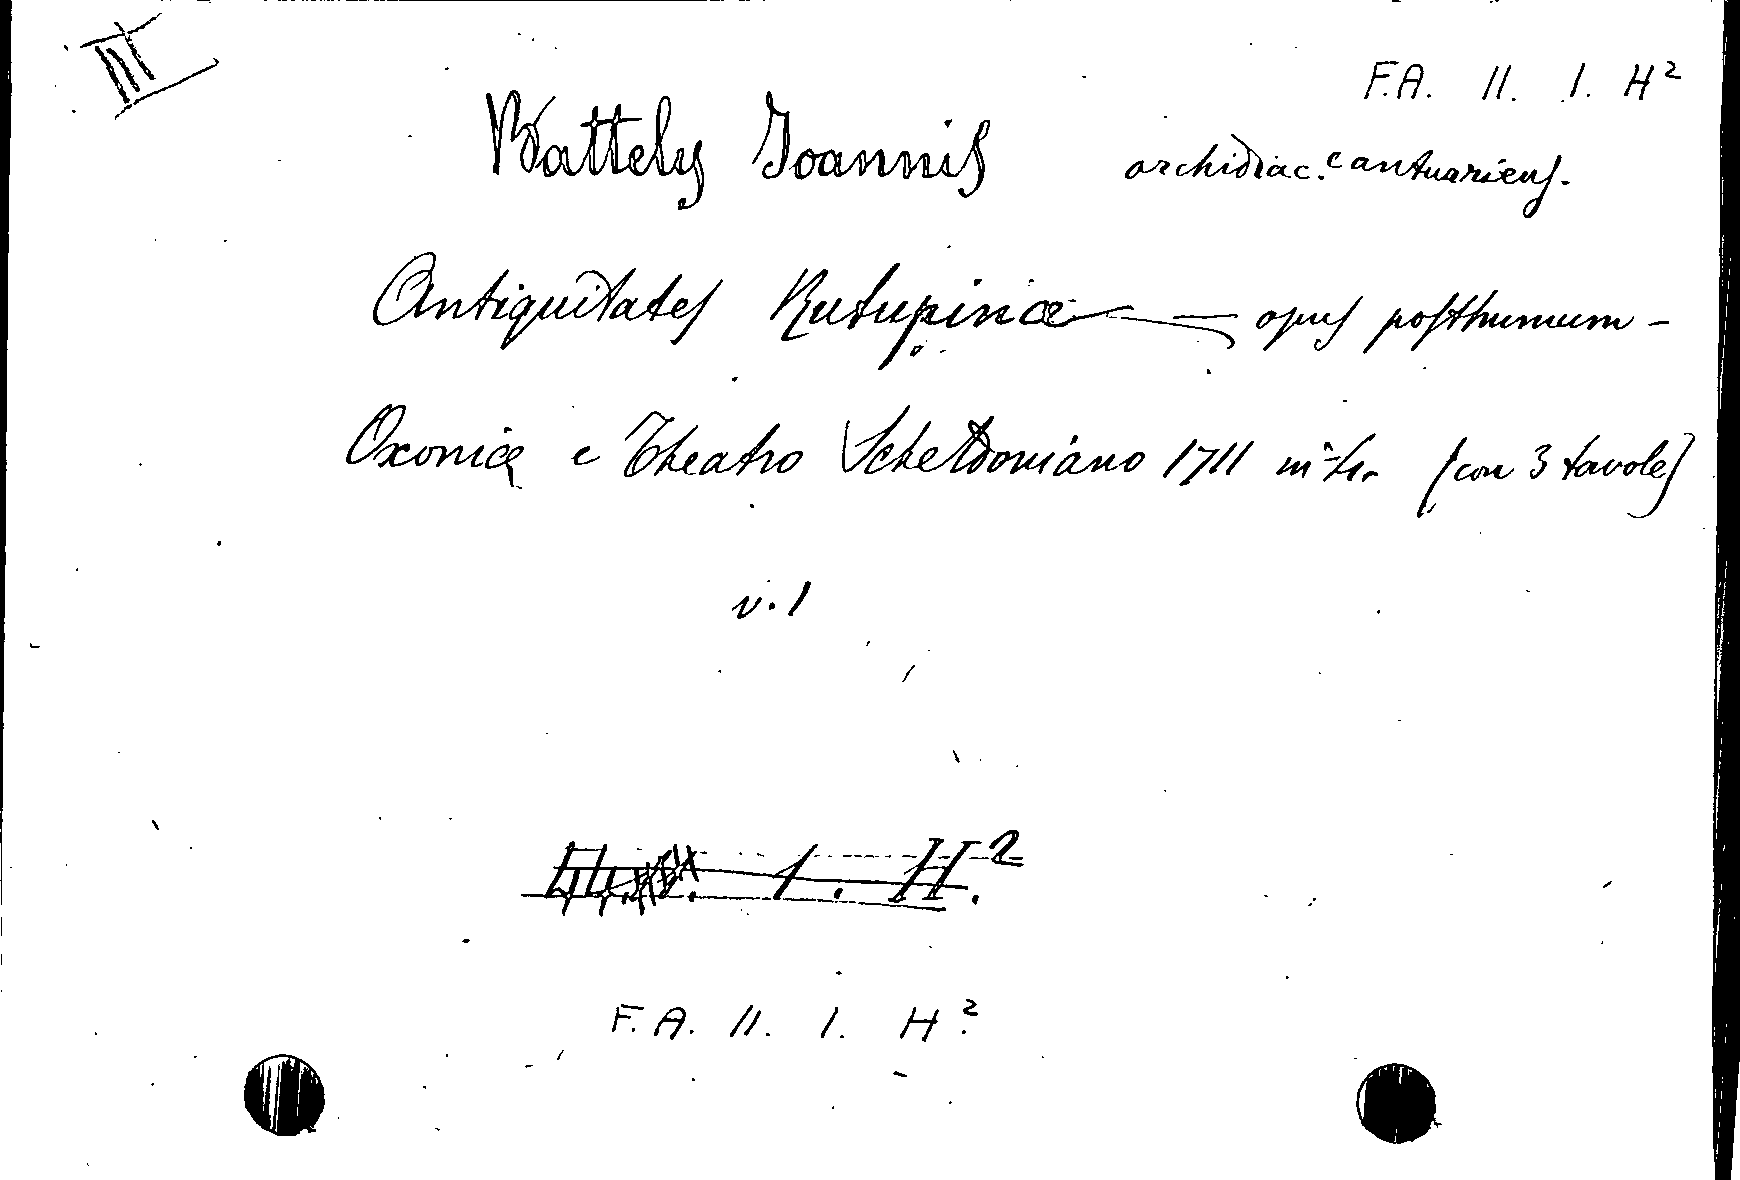 III
F.A. II. I. H²
Battely Joannis archidiac. cantuariens.
Antiquitates Rutupinæ — opus posthumum -
Oxoniæ e Theatro Scheldoniano 1711 in-4. (con 3 tavole)
v. 1
1. H.²
F. A. II. I. H²